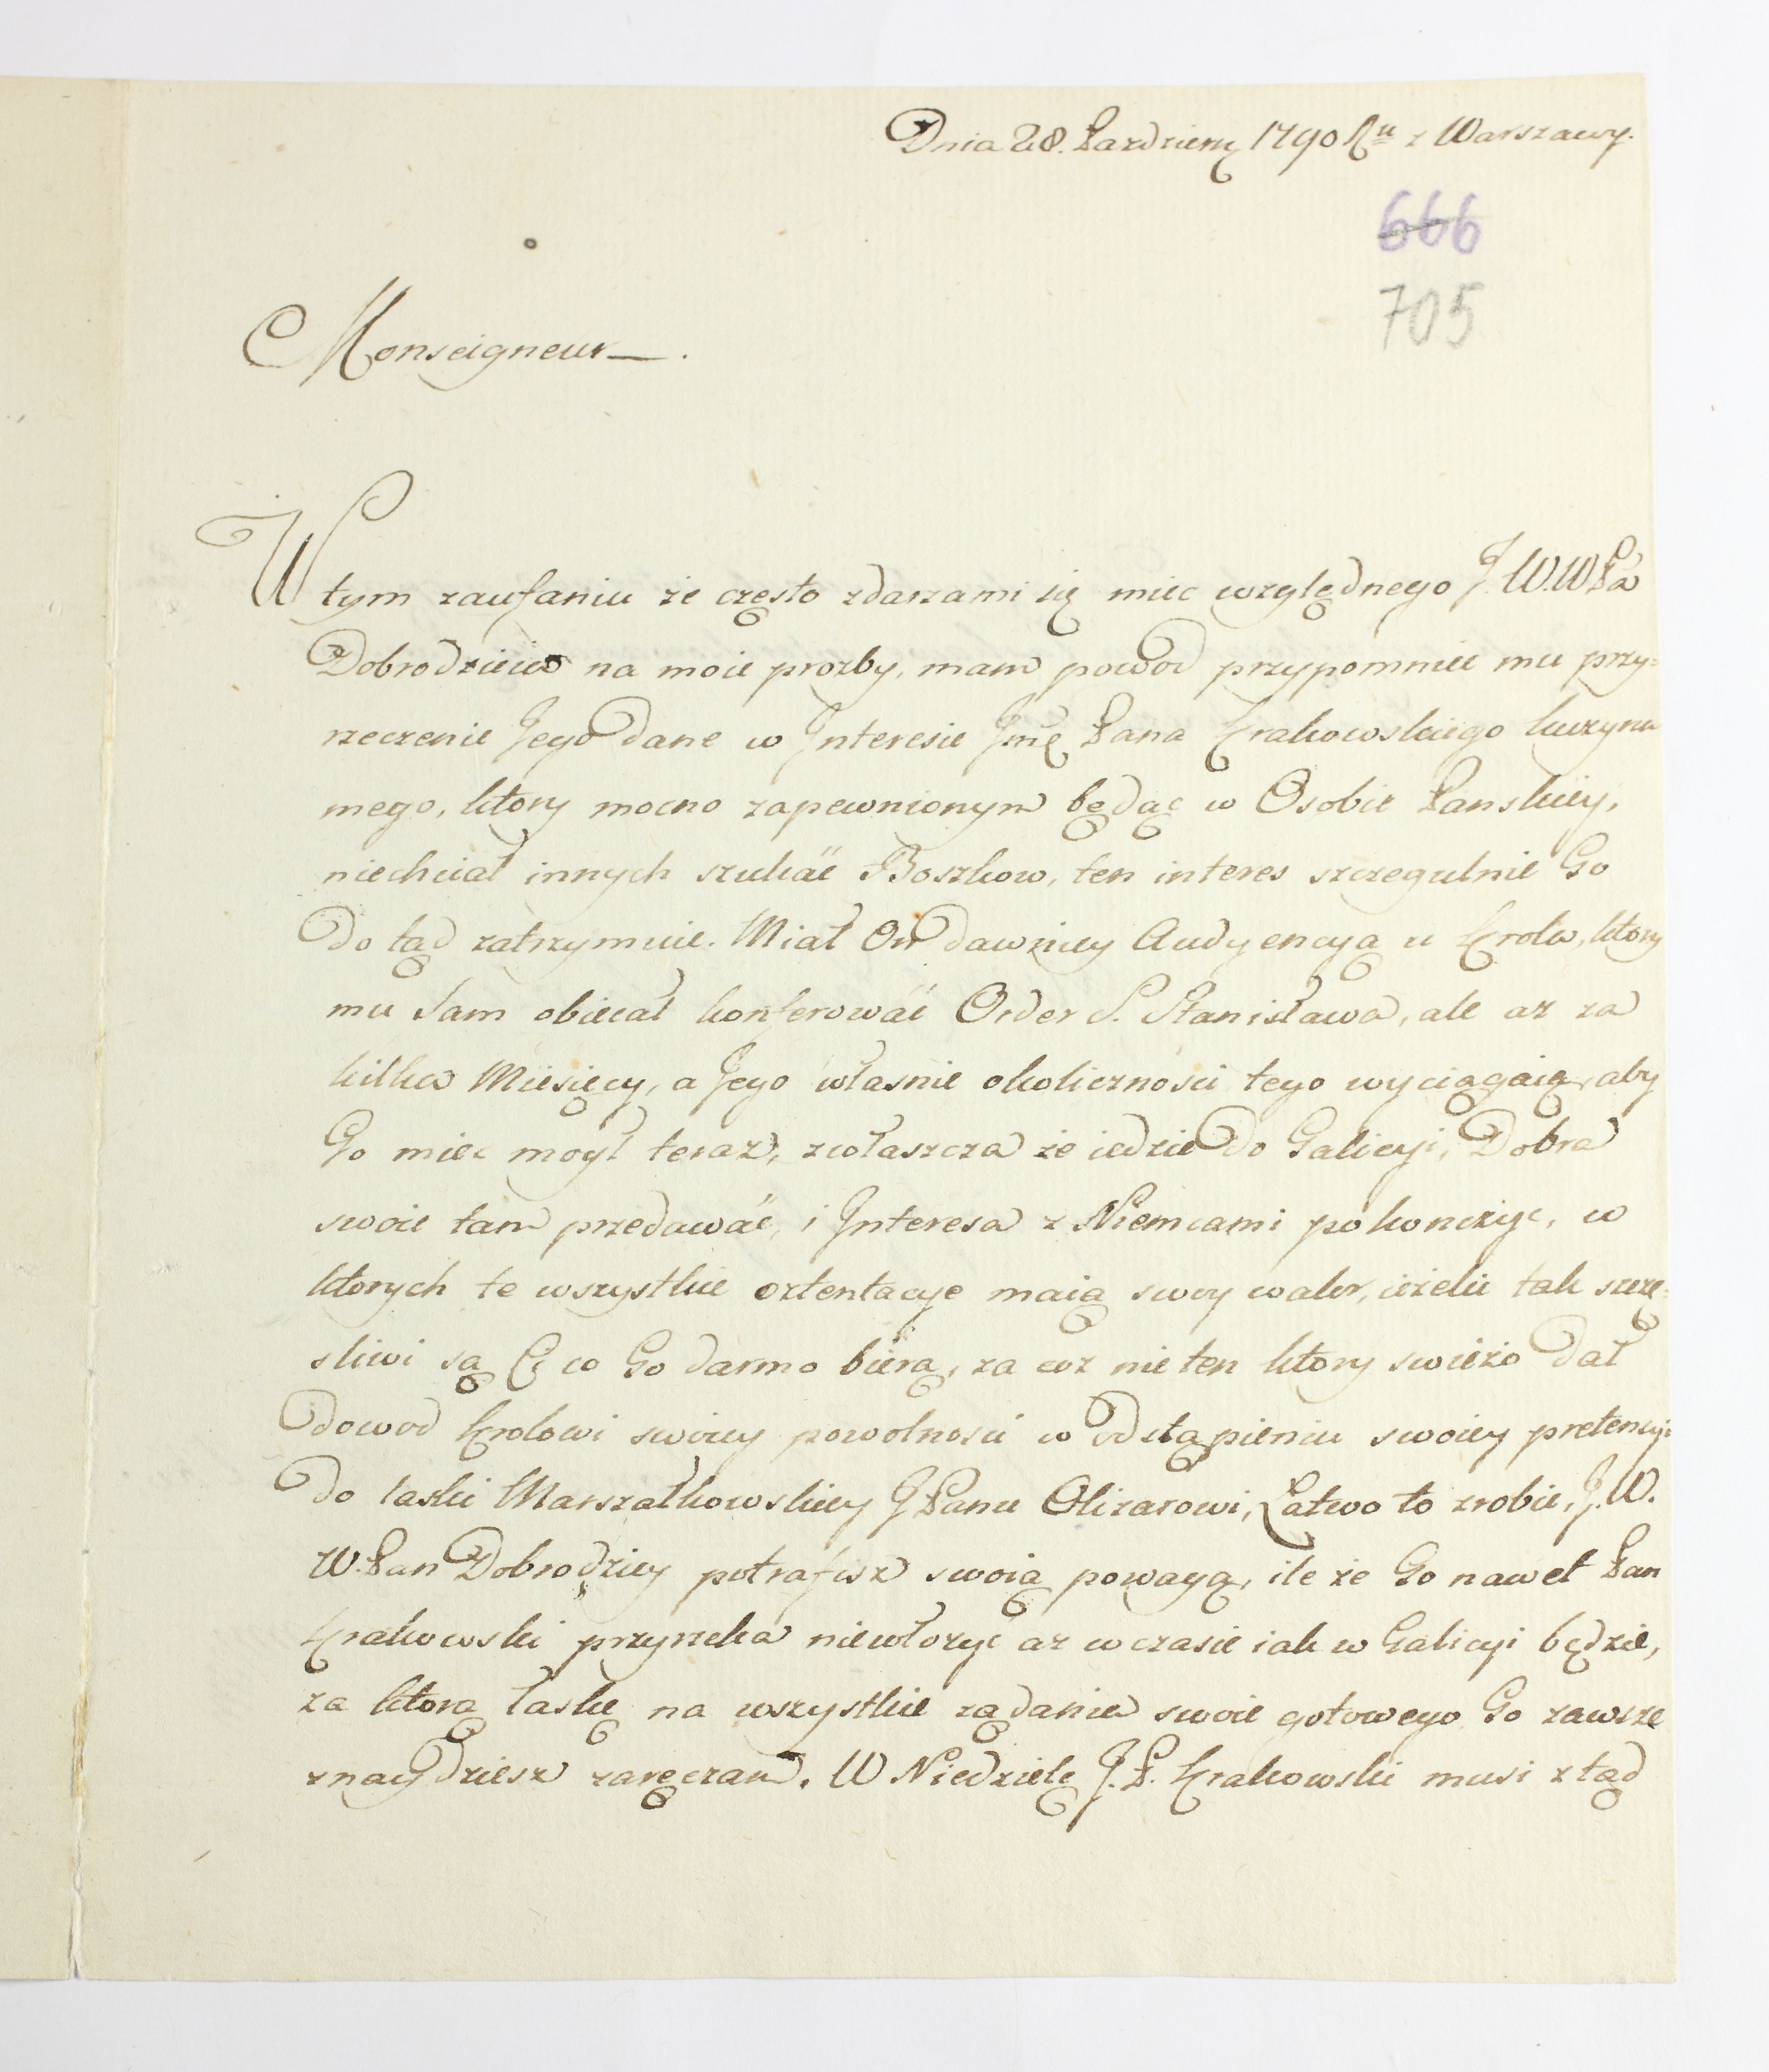 Dnia 28. Pazdziern 1790 Ru z Warszawy.
666
705
Monseigneur.
W tym zaufaniu że często zdarza mi się miec względnego J. W. W Pa
Dobrodzieia na moie prozby, mam powod przypomniec mu przy=
rzeczenie Jego dane w Interesie Jmę Pana Krakowskiego kuzyna
mego, ktory mocno zapewnionym będąc w Osobie Panskiey,
niechciał innych szukać Boszkow, ten interes szczegulnie Go
do tąd zatrzymuie. Miał On dawniey Audyencyą u Krola, ktory
mu sam obiecał konferować Order S. Stanisława, ale az za
kilka Miesięcy, a Jego własnie okolicznosci tego wyciągaią, aby
Go miec mogł teraz, zwłaszcza że iedzie do Galicyi, Dobra
swoie tam przedawać, i Interesa z Niemcami pokonczyc, w
ktorych te wszystkie ostentacye maią swoy walor, ieżeli tak szczę=
sliwi są Ci co Go darmo biera, za coz nie ten ktory swieżo dał
dowod Krolowi swoiey powolnosci w odstąpieniu swoiey pretensyi
do laski Marszałkowskiey J Panu Olizarowi, Łatwo to zrobic, J. W.
W. Pan Dobrodziey potrafisz swoią powagą, ile że Go nawet Pan
Krakowski przyrzeka niewłożyc az w czasie iak w Galicyi będzie,
za ktorą łaskę na wszystkie ządania swoie gotowego Go zawsze
znaydziesz zaręczam. W Niedzielę J. P. Krakowski musi ztąd